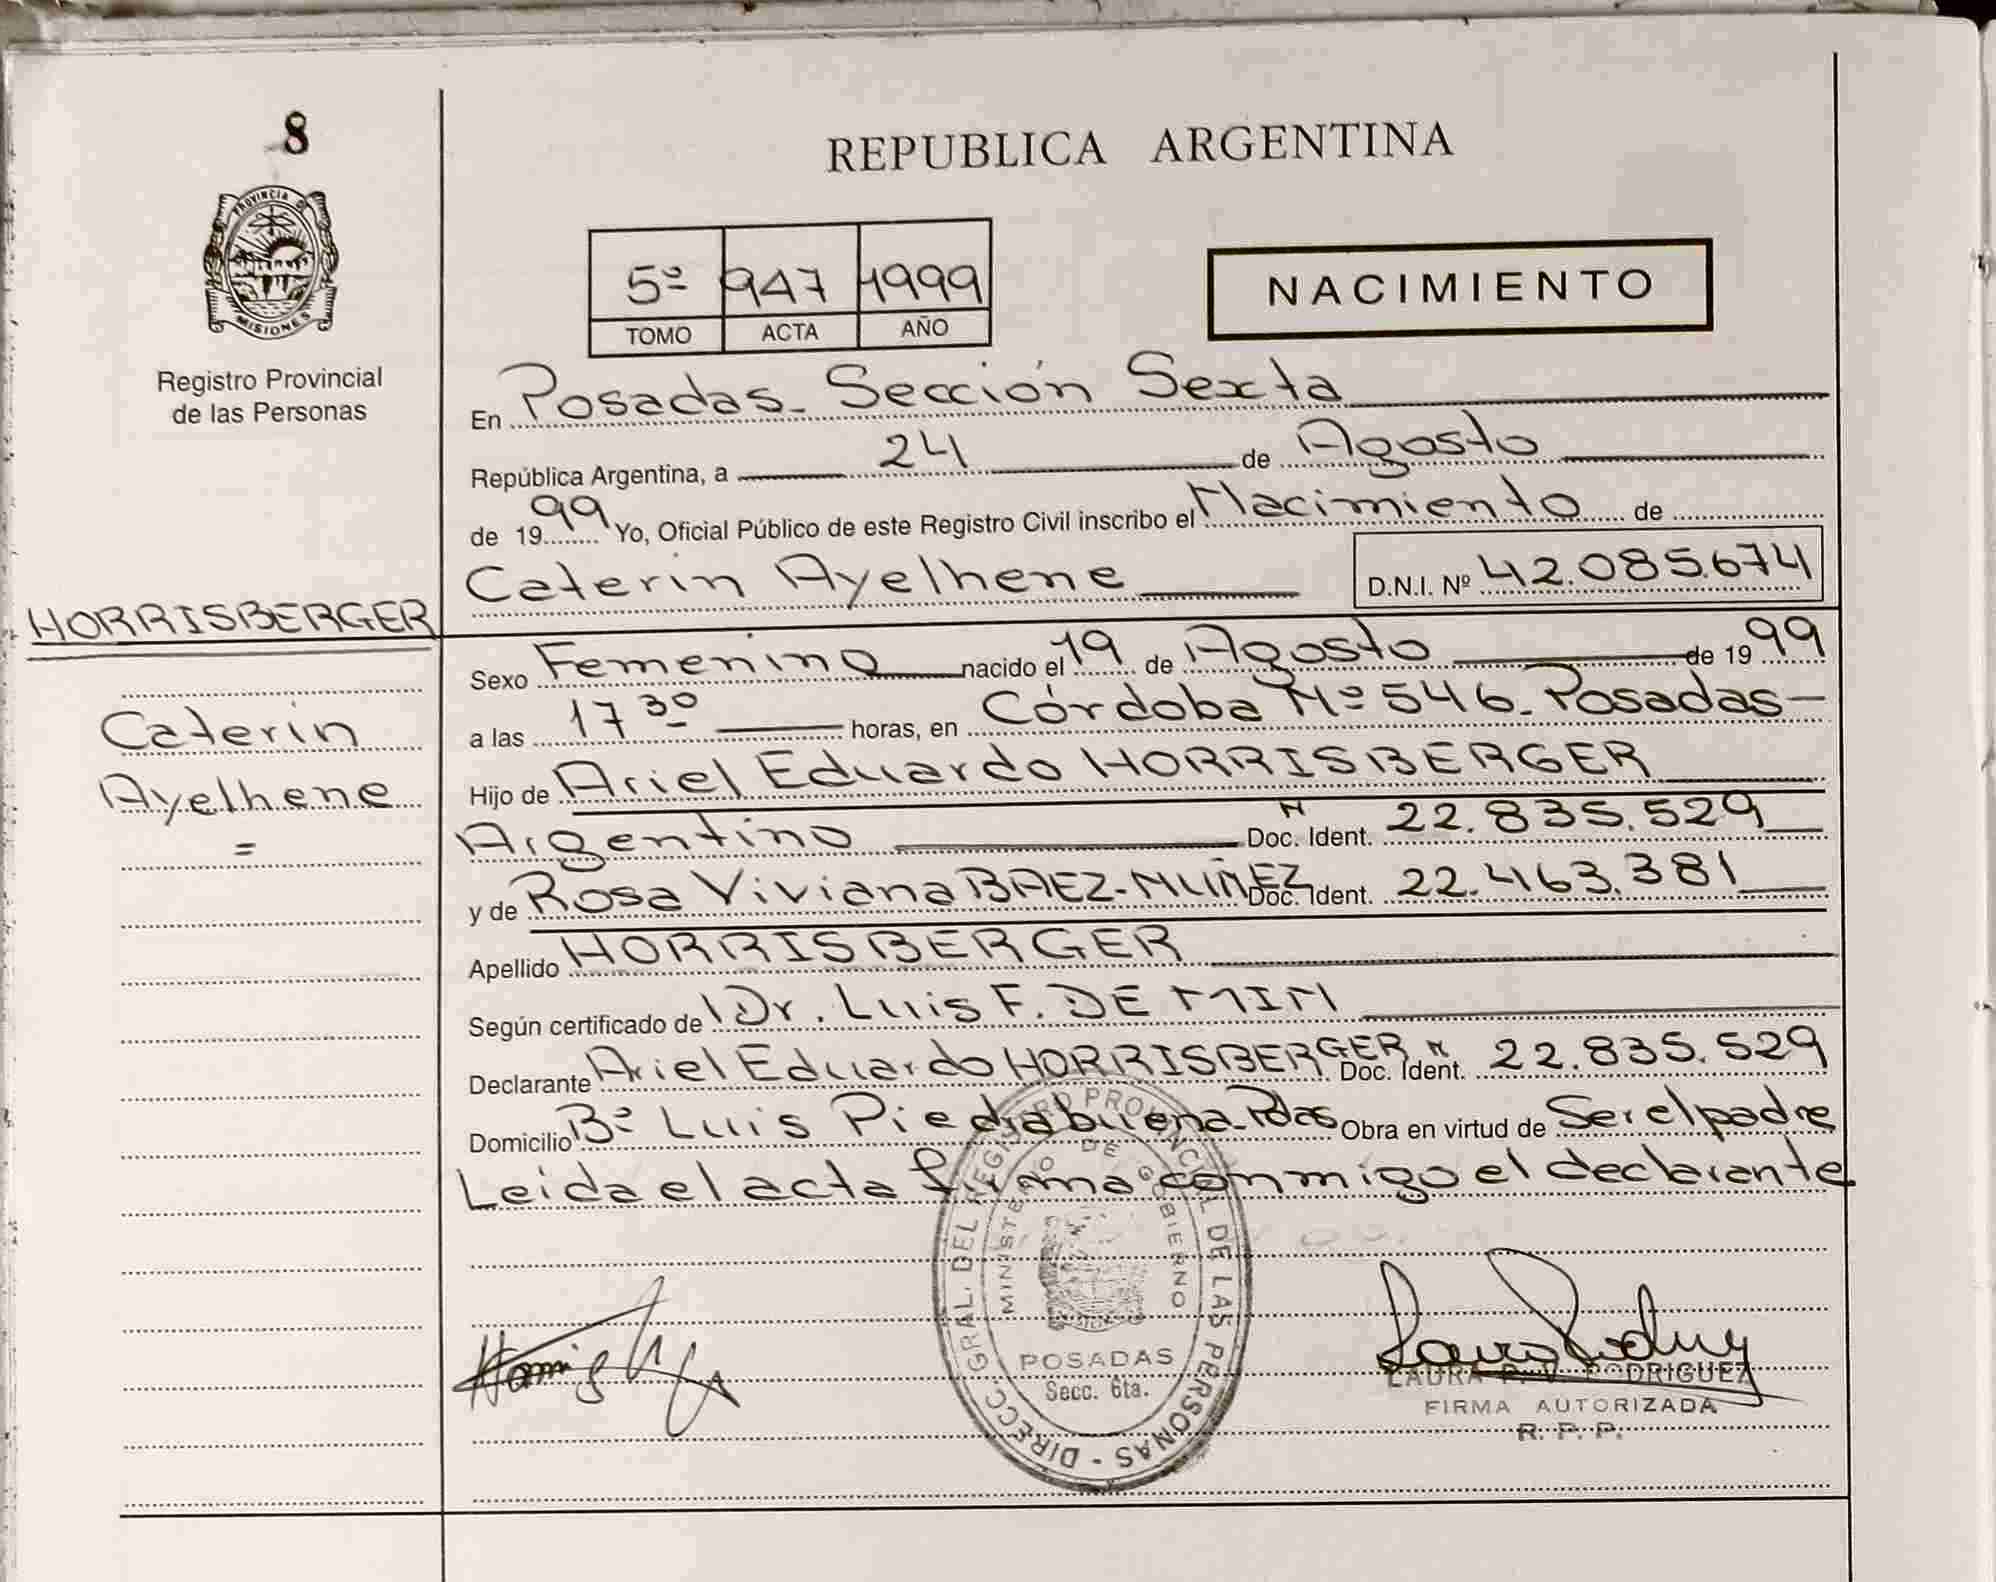 8
PROVINCIA DE
MISIONES
Registro Provincial
de las Personas
HORRISBERGER
Caterin
Ayelhene
=
REPUBLICA ARGENTINA
5º 947 1999
TOMO ACTA AÑO
NACIMIENTO
En Posadas. Sección Sexta
República Argentina, a 24 de Agosto
de 1999 Yo, Oficial Público de este Registro Civil inscribo el Nacimiento de
Caterin Ayelhene D.N.I. Nº 42.085.674
Sexo Femenino nacido el 19 de Agosto de 1999
a las 17 30 horas, en Córdoba Nº 546. Posadas-
Hijo de Ariel Eduardo HORRISBERGER
Argentino Doc. Ident. 22.835.529
y de Rosa Viviana BAEZ-NUÑEZ Doc. Ident. 22.463.381
Apellido HORRISBERGER
Según certificado de Dr. Luis F. DE MIN
Declarante Ariel Eduardo HORRISBERGER Doc. Ident. 22.835.529
Domicilio Bº Luis Piedrabuena. Pdas Obra en virtud de Ser el padre
Leida el acta firma conmigo el declarante
DIRECC. GRAL. DEL REGISTRO PROVINCIAL DE LAS PERSONAS -
MINISTERIO DE GOBIERNO
POSADAS
Secc. 6ta.
LAURA P. V. RODRIGUEZ
FIRMA AUTORIZADA
R. P. P.